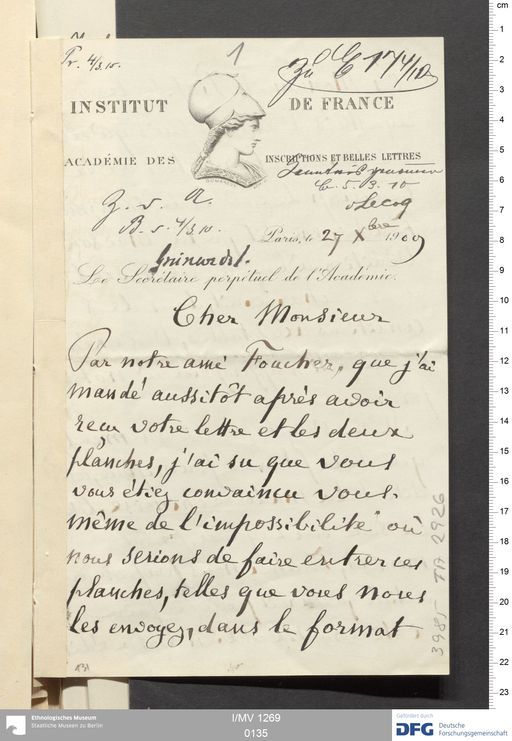 Pr. 4/3.10.
1
Zu E 174/10
INSTITUT DE FRANCE
ACADÉMIE DES INSCRIPTIONS ET BELLES LETTRES
B. 5. 3. 10
vLecoq
Z. d. A.
B. v. 4/3.10.
Paris, le 27 Xbre 1909
Grünwedel.
Le Secrétaire perpétuel de l'Académie.
Cher Monsieur
Par notre ami Foucher, que j'ai
mandé aussitôt après avoir
reçu votre lettre et les deux
planches, j'ai su que vous
vous étiez convaincu vous-
même de l'impossibilité où
nous serions de faire entrer ces
planches, telles que vous nous
les envoyez, dans le format
3985 TA 2926
131
cm
1
2
3
4
5
6
7
8
9
10
11
12
13
14
15
16
17
18
19
20
21
22
23
Ethnologisches Museum
Staatliche Museen zu Berlin
I/MV 1269
0135
Gefördert durch
DFG Deutsche
Forschungsgemeinschaft